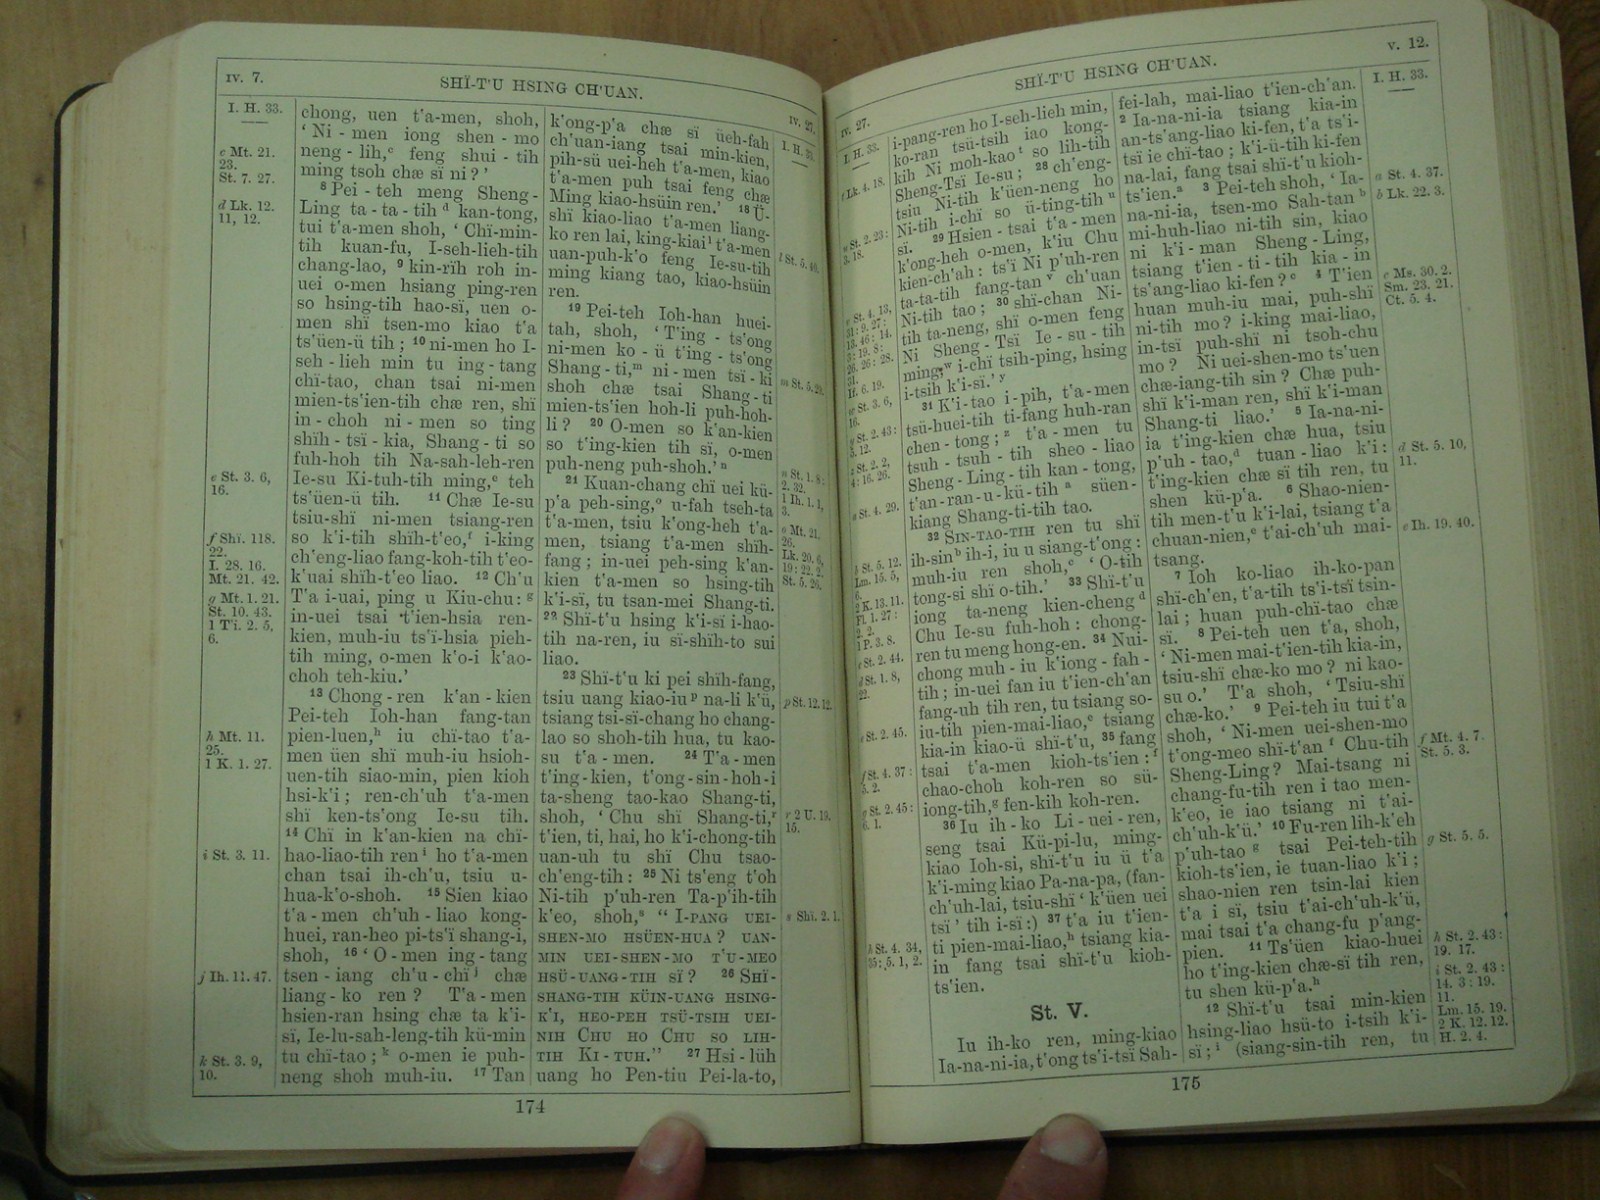 IV. 7.
SHÏ-T'U HSING CH'UAN.
IV. 27.
I. H. 33.
c Mt. 21.
23.
St. 7. 27.
d Lk. 12.
11, 12.
e St. 3. 6,
16.
f Shï. 118.
22.
I. 28. 16.
Mt. 21. 42.
g Mt. 1. 21.
St. 10. 43.
1 Tï. 2. 5,
6.
h Mt. 11.
25.
1 K. 1. 27.
i St. 3. 11.
j Ih. 11. 47.
k St. 3. 9,
10.
chong, uen t'a-men, shoh,
' Ni - men iong shen - mo
neng - lih,ᶜ feng shui - tih
ming tsoh chæ sï ni ? '
⁸ Pei - teh meng Sheng-
Ling ta - ta - tih ᵈ kan-tong,
tui t'a-men shoh, ' Chï-min-
tih kuan-fu, I-seh-lieh-tih
chang-lao, ⁹ kin-rïh roh in-
uei o-men hsiang ping-ren
so hsing-tih hao-sï, uen o-
men shï tsen-mo kiao t'a
ts'üen-ü tih ; ¹⁰ ni-men ho I-
seh - lieh min tu ing - tang
chï-tao, chan tsai ni-men
mien-ts'ien-tih chæ ren, shï
in - choh ni - men so ting
shïh - tsï - kia, Shang - ti so
fuh-hoh tih Na-sah-leh-ren
Ie-su Ki-tuh-tih ming,ᵉ teh
ts'üen-ü tih. ¹¹ Chæ Ie-su
tsiu-shï ni-men tsiang-ren
so k'i-tih shïh-t'eo,ᶠ i-king
ch'eng-liao fang-koh-tih t'eo-
k'uai shïh-t'eo liao. ¹² Ch'u
T'a i-uai, ping u Kiu-chu: ᵍ
in-uei tsai t'ien-hsia ren-
kien, muh-iu ts'ï-hsia pieh-
tih ming, o-men k'o-i k'ao-
choh teh-kiu.'
¹³ Chong - ren k'an - kien
Pei-teh Ioh-han fang-tan
pien-luen,ʰ iu chï-tao t'a-
men üen shï muh-iu hsioh-
uen-tih siao-min, pien kioh
hsi-k'i ; ren-ch'uh t'a-men
shï ken-ts'ong Ie-su tih.
¹⁴ Chï in k'an-kien na chï-
hao-liao-tih ren ⁱ ho t'a-men
chan tsai ih-ch'u, tsiu u-
hua-k'o-shoh. ¹⁵ Sien kiao
t'a - men ch'uh - liao kong-
huei, ran-heo pi-ts'ï shang-i,
shoh, ¹⁶ ' O-men ing - tang
tsen - iang ch'u - chï ʲ chæ
liang - ko ren ? T'a - men
hsien-ran hsing chæ ta k'i-
sï, Ie-lu-sah-leng-tih kü-min
tu chï-tao ; ᵏ o-men ie puh-
neng shoh muh-iu. ¹⁷ Tan
k'ong-p'a chæ sï üeh-fah
ch'uan-iang tsai min-kien,
pih-sü uei-heh t'a-men, kiao
t'a-men puh tsai feng chæ
Ming kiao-hsüin ren.' ¹⁸ Ü-
shï kiao-liao t'a-men liang-
ko ren lai, king-kiai ˡ t'a-men
uan-puh-k'o feng Ie-su-tih
ming kiang tao, kiao-hsüin
ren.
¹⁹ Pei-teh Ioh-han huei-
tah, shoh, ' T'ing - ts'ong
ni-men ko - ü t'ing - ts'ong
Shang - ti,ᵐ ni - men tsï - ki
shoh chæ tsai Shang - ti
mien-ts'ien hoh-li puh-hoh-
li ? ²⁰ O-men so k'an-kien
so t'ing-kien tih sï, o-men
puh-neng puh-shoh.' ⁿ
²¹ Kuan-chang chï uei kü-
p'a peh-sing,ᵒ u-fah tseh-ta
t'a-men, tsiu k'ong-heh t'a-
men, tsiang t'a-men shïh-
fang ; in-uei peh-sing k'an-
kien t'a-men so hsing-tih
k'i-sï, tu tsan-mei Shang-ti.
²² Shï-t'u hsing k'i-sï i-hao-
tih na-ren, iu sï-shïh-to sui
liao.
²³ Shï-t'u ki pei shïh-fang,
tsiu uang kiao-iu ᵖ na-li k'ü,
tsiang tsi-sï-chang ho chang-
lao so shoh-tih hua, tu kao-
su t'a - men. ²⁴ T'a - men
t'ing-kien, t'ong-sin-hoh-i
ta-sheng tao-kao Shang-ti,
shoh, ' Chu shï Shang-ti,ʳ
t'ien, ti, hai, ho k'i-chong-tih
uan-uh tu shï Chu tsao-
ch'eng-tih : ²⁵ Ni ts'eng t'oh
Ni-tih p'uh-ren Ta-p'ih-tih
k'eo, shoh,ˢ " I-PANG UEI-
SHEN-MO HSÜEN-HUA ? UAN-
MIN UEI-SHEN-MO T'U-MEO
HSÜ-UANG-TIH SÏ ? ²⁶ SHÏ-
SHANG-TIH KÜIN-UANG HSING-
K'I, HEO-PEH TSÜ-TSIH UEI-
NIH CHU HO CHU SO LIH-
TIH KI - TUH." ²⁷ Hsi - lüh
uang ho Pen-tiu Pei-la-to,
I. H. 33.
l St. 5. 40.
m St. 5. 29.
n St. 1. 8 :
2. 32.
1 Ih. 1. 1,
3.
o Mt. 21.
26.
Lk. 20. 6,
19 : 22. 2.
St. 5. 26.
p St. 12. 12.
r 2 U. 19.
15.
s Shï. 2. 1.
174
IV. 27.
SHÏ-T'U HSING CH'UAN.
V. 12.
I. H. 33.
t Lk. 4. 18.
u St. 2. 23 :
3. 18.
v St. 4. 13,
31 : 9. 27 :
13. 46 : 14.
3 : 19. 8 :
26. 26 : 28.
31.
If. 6. 19.
w St. 3. 6,
16.
y St. 2. 43 :
5. 12.
z St. 2. 2,
4 : 16. 26.
a St. 4. 29.
b St. 5. 12.
Lm. 15. 5,
6.
2 K. 13. 11.
Fl. 1. 27 :
2. 2.
1 P. 3. 8.
c St. 2. 44.
d St. 1. 8,
22.
e St. 2. 45.
f St. 4. 37 :
5. 2.
g St. 2. 45 :
6. 1.
h St. 4. 34,
35 : 5. 1, 2.
i-pang-ren ho I-seh-lieh min,
ko-ran tsü-tsih iao kong-
kih Ni moh-kao ᵗ so lih-tih
Sheng-Tsï Ie-su ; ²⁸ ch'eng-
tsiu Ni-tih k'üen-neng ho
Ni-tih i-chï so ü-ting-tih ᵘ
sï. ²⁹ Hsien - tsai t'a - men
k'ong-heh o-men, k'iu Chu
kien-ch'ah : ts'ï Ni p'uh-ren
ta-ta-tih fang-tan ᵛ ch'uan
Ni-tih tao ; ³⁰ shï-chan Ni-
tih ta-neng, shï o-men feng
Ni Sheng - Tsï Ie - su - tih
ming,ʷ i-chï tsih-ping, hsing
i-tsih k'i-sï.' ʸ
³¹ K'i-tao i-pih, t'a-men
tsü-huei-tih ti-fang huh-ran
chen - tong ; ᶻ t'a - men tu
tsuh - tsuh - tih sheo - liao
Sheng - Ling - tih kan - tong,
t'an-ran-u-kü-tih ᵃ süen-
kiang Shang-ti-tih tao.
³² SIN-TAO-TIH ren tu shï
ih-sin ᵇ ih-i, iu u siang-t'ong :
muh-iu ren shoh,ᶜ ' O-tih
tong-si shï o-tih.' ³³ Shï-t'u
iong ta-neng kien-cheng ᵈ
Chu Ie-su fuh-hoh : chong-
ren tu meng hong-en. ³⁴ Nui-
chong muh - iu k'iong - fah -
tih ; in-uei fan iu t'ien-ch'an
fang-uh tih ren, tu tsiang so-
iu-tih pien-mai-liao,ᵉ tsiang
kia-in kiao-ü shï-t'u, ³⁵ fang
tsai t'a-men kioh-ts'ien : ᶠ
chao-choh koh-ren so sü-
iong-tih,ᵍ fen-kih koh-ren.
³⁶ Iu ih - ko Li - uei - ren,
seng tsai Kü-pi-lu, ming-
kiao Ioh-si, shï-t'u iu ü t'a
k'i-ming kiao Pa-na-pa, (fan-
ch'uh-lai, tsiu-shï ' k'üen uei
tsï ' tih i-sï :) ³⁷ t'a iu t'ien-
ti pien-mai-liao,ʰ tsiang kia-
in fang tsai shï-t'u kioh-
ts'ien.
St. V.
Iu ih-ko ren, ming-kiao
Ia-na-ni-ia, t'ong ts'i-tsï Sah-
fei-lah, mai-liao t'ien-ch'an.
² Ia-na-ni-ia tsiang kia-in
an-ts'ang-liao ki-fen, t'a ts'i-
tsï ie chï-tao ; k'i-ü-tih ki-fen
na-lai, fang tsai shï-t'u kioh-
ts'ien.ᵃ ³ Pei-teh shoh, ' Ia-
na-ni-ia, tsen-mo Sah-tan ᵇ
mi-huh-liao ni-tih sin, kiao
ni k'i - man Sheng - Ling,
tsiang t'ien - ti - tih kia - in
ts'ang-liao ki-fen ? ᶜ ⁴ T'ien
huan muh-iu mai, puh-shï
ni-tih mo ? i-king mai-liao,
in-tsï puh-shï ni tsoh-chu
mo ? Ni uei-shen-mo ts'uen
chæ-iang-tih sin ? Chæ puh-
shï k'i-man ren, shï k'i-man
Shang-ti liao.' ⁵ Ia-na-ni-
ia t'ing-kien chæ hua, tsiu
p'uh - tao,ᵈ tuan - liao k'i :
t'ing-kien chæ sï tih ren, tu
shen kü-p'a. ⁶ Shao-nien-
tih men-t'u k'i-lai, tsiang t'a
chuan-nien,ᵉ t'ai-ch'uh mai-
tsang.
⁷ Ioh ko-liao ih-ko-pan
shï-ch'en, t'a-tih ts'i-tsï tsin-
lai ; huan puh-chï-tao chæ
sï. ⁸ Pei-teh uen t'a, shoh,
' Ni-men mai-t'ien-tih kia-in,
tsiu-shï chæ-ko mo ? ni kao-
su o.' T'a shoh, ' Tsiu-shï
chæ-ko.' ⁹ Pei-teh iu tui t'a
shoh, ' Ni-men uei-shen-mo
t'ong-meo shï-t'an ᶠ Chu-tih
Sheng-Ling ? Mai-tsang ni
chang-fu-tih ren i tao men-
k'eo, ie iao tsiang ni t'ai-
ch'uh-k'ü.' ¹⁰ Fu-ren lih-k'eh
p'uh-tao ᵍ tsai Pei-teh-tih
kioh-ts'ien, ie tuan-liao k'i ;
shao-nien ren tsin-lai kien
t'a i sï, tsiu t'ai-ch'uh-k'ü,
mai tsai t'a chang-fu p'ang-
pien. ¹¹ Ts'üen kiao-huei
ho t'ing-kien chæ-sï tih ren,
tu shen kü-p'a.ʰ
¹² Shï-t'u tsai min-kien
hsing-liao hsü-to i-tsih k'i-
sï ; ⁱ (siang-sin-tih ren, tu
I. H. 33.
a St. 4. 37.
b Lk. 22. 3.
c Ms. 30. 2.
Sm. 23. 21.
Ct. 5. 4.
d St. 5. 10,
11.
e Ih. 19. 40.
f Mt. 4. 7.
St. 5. 3.
g St. 5. 5.
h St. 2. 43 :
19. 17.
i St. 2. 43 :
14. 3 : 19.
11.
Lm. 15. 19.
2 K. 12. 12.
H. 2. 4.
175